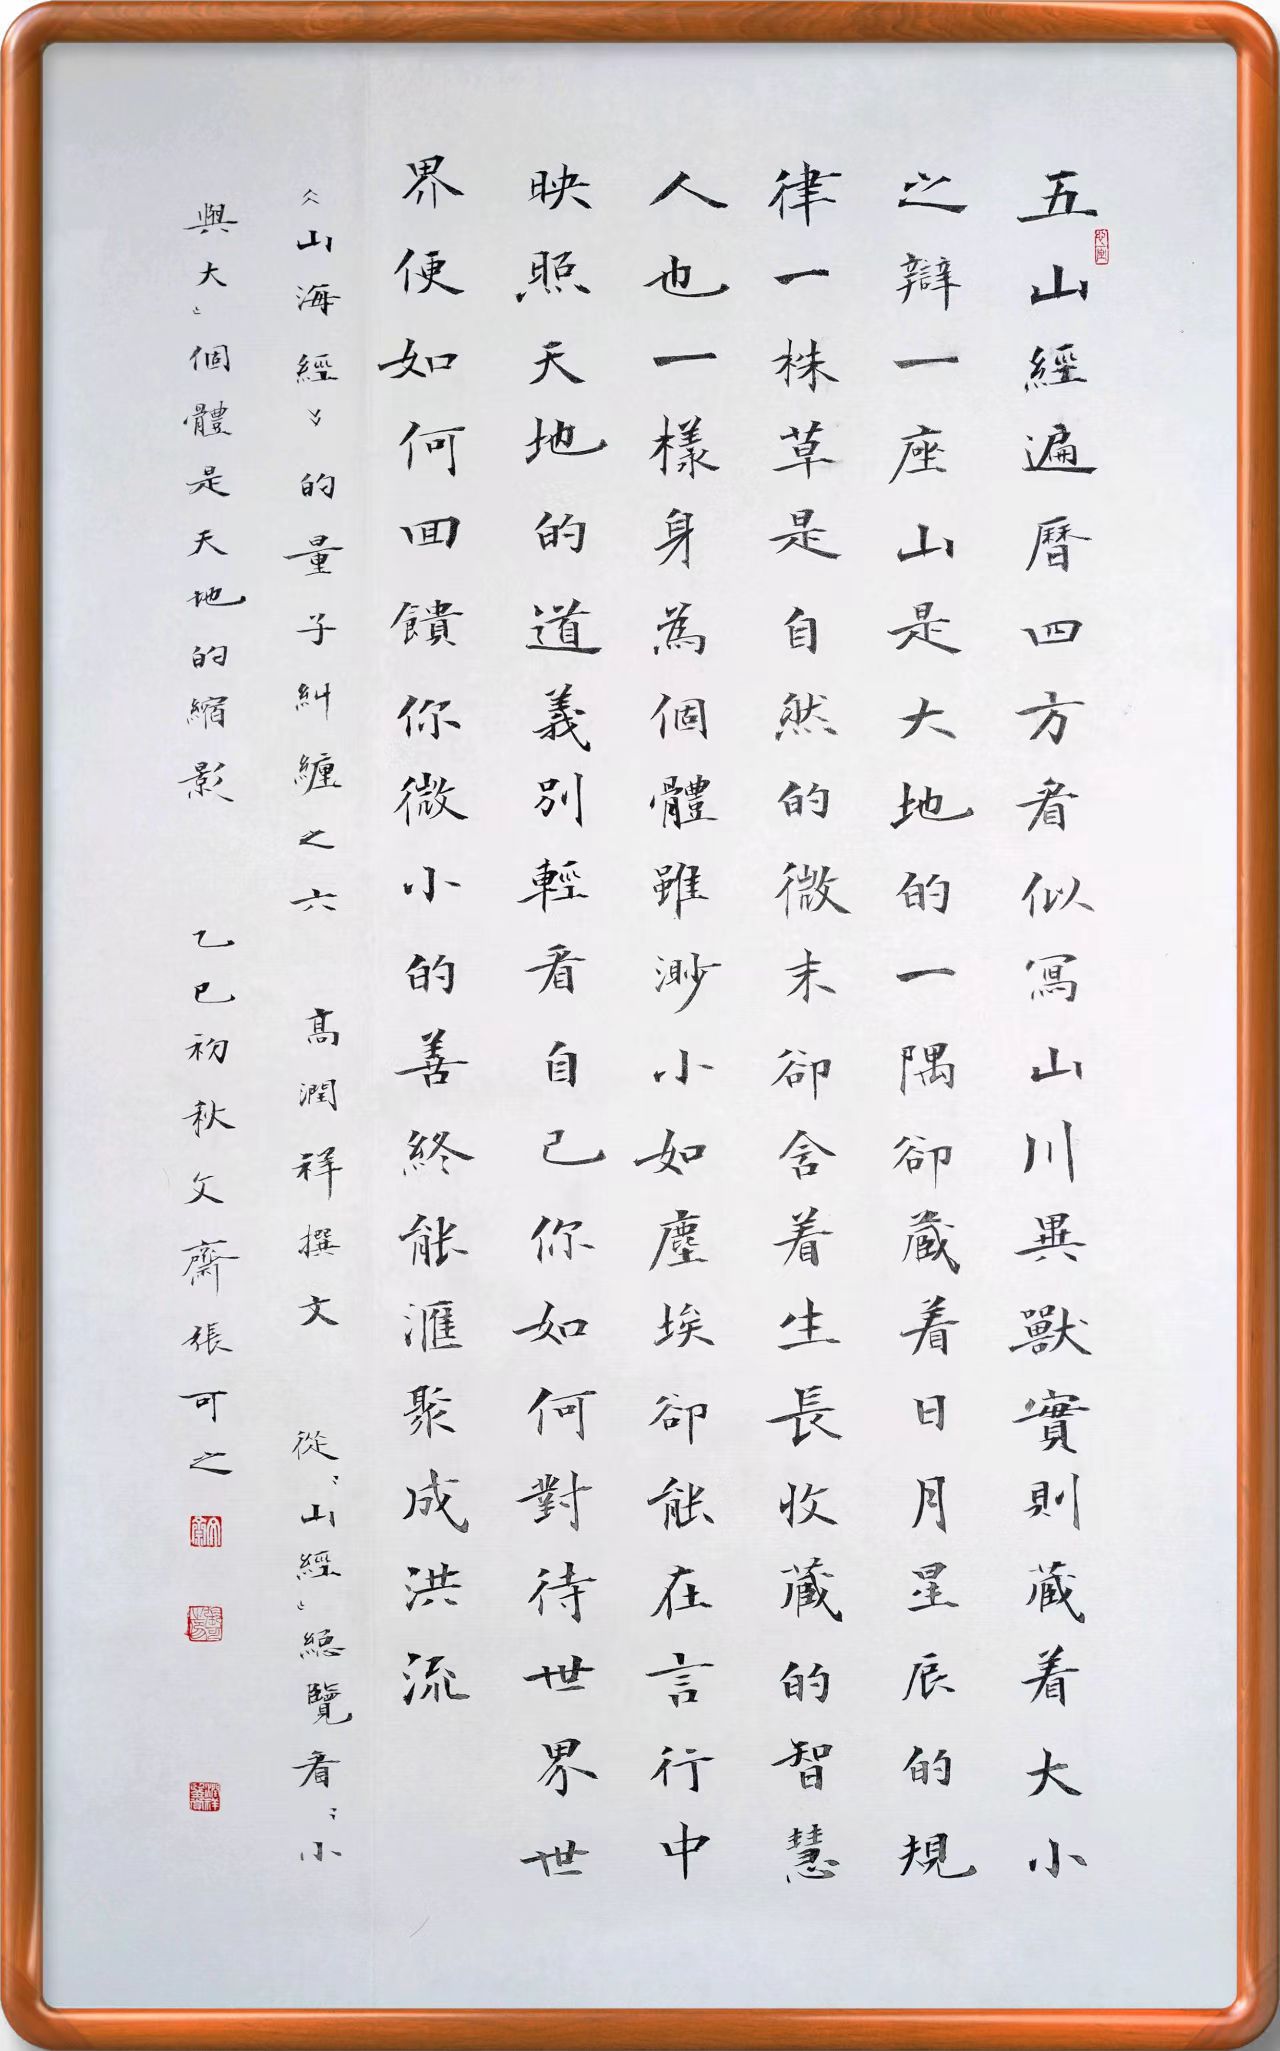 五山經遍曆四方看似寫山川異獸實則蔵着大小
之辯一座山是大地的一隅卻蔵着日月星辰的規
律一株草是自然的微末卻含着生長收蔵的智慧
人也一樣身為個體雖渺小如塵埃卻能在言行中
映照天地的道義別輕看自己你如何對待世界世
界便如何回饋你微小的善終能滙聚成洪流
《山海經》的量子糾纏之六 高潤祥撰文 從“山經”總覽看“小
與大”個體是天地的縮影 乙巳初秋文齋張可之